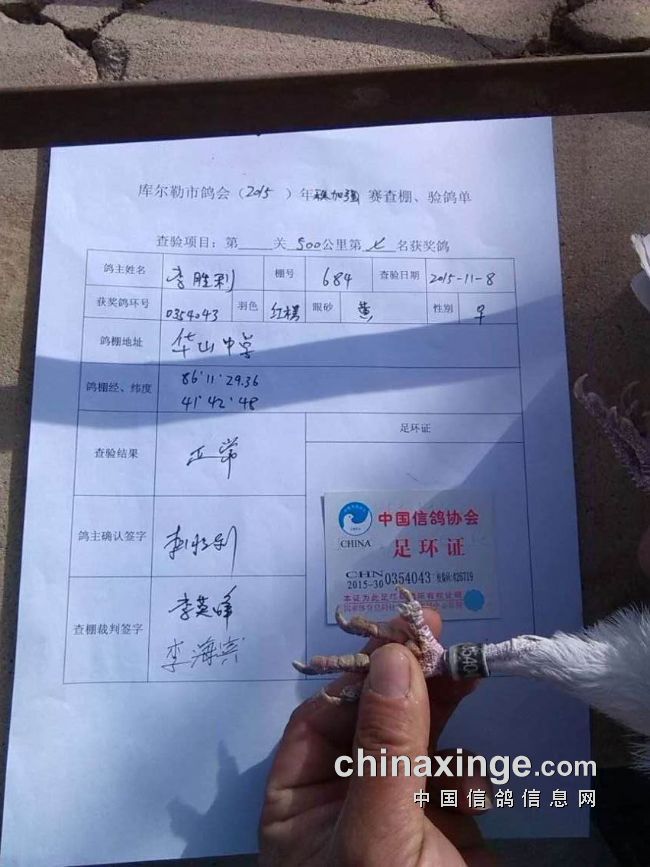 库尔勒市鸽会（2015）年加强赛查棚、验鸽单
查验项目：第 关 500公里第七名获奖鸽
鸽主姓名 李胜利 棚号 684 查验日期 2015-11-8
获奖鸽环号 0354043 羽色 红楞 眼砂 黄 性别 ♀
鸽棚地址 华山中学
鸽棚经、纬度 86°11'29.36
41°42'48
查验结果 正常
足环证
鸽主确认签字 李胜利
查棚裁判签字 李英峰
李海宾
中国信鸽协会
CHINA 足环证
CHN
2015-30 0354043
本证为此足
540
chinaxinge.com
中国信鸽信息网